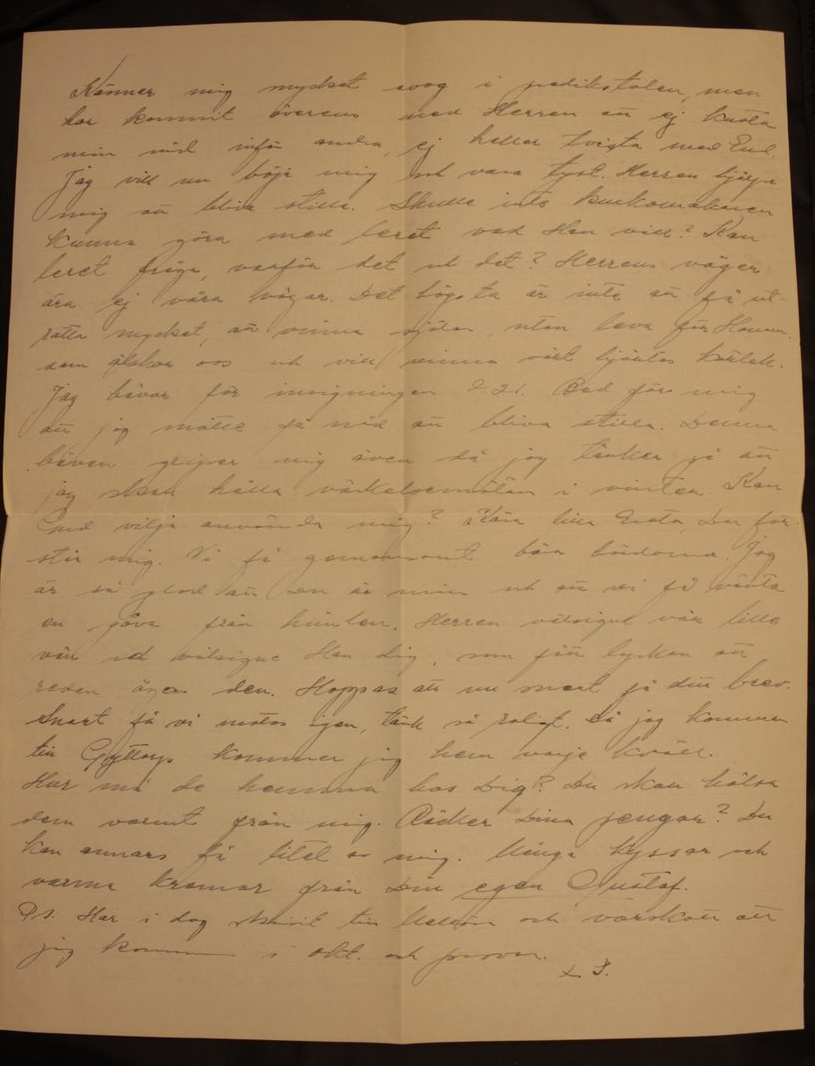 Känner mig mycket svag i predikstolen, men
har kommit överens med Herren att ej kasta
min nöd inför andra, ej heller tvista med Gud.
Jag vill nu böja mig och vara tyst. Herren hjälpe
mig att bliva stilla. Skulle inte krukomakaren
kunna göra med leret vad Han vill? Kan
leret fråga, varför det och det? Herrens vägar
äro ej våra vägar. Det högsta är inte att få ut-
rätta mycket, att vinna själar, utan leva för Honom,
som älskar oss och vill vinna vårt hjärtas kärlek.
Jag bävar för invigningen d 21. Bed för mig
att jag måtte få nåd att bliva stilla. Denna
bävan griper mig även då jag tänker på att
jag skall hålla väckelsemöten i vinter. Kan
Gud vilja använda mig? Kära lilla Du för-
står mig. Vi få gemensamt bära bördorna. Jag
är så glad att Du är min och att vi få vänta
en gåva från himlen. Herren välsigne vår lille
vän och välsigne Han dig, som fått lyckan att
redan äga den. Hoppas att nu snart få ditt brev.
Snart få vi mötas igen, tänk så roligt. Då jag kommer
till Gyttorp kommer jag hem varje kväll.
Hur må de hemma hos Dig? Du skall hälsa
dem varmt från mig. Räcker Dina pengar? Du
kan annars få litet av mig. Många kyssar och
varma kramar från Din egen Gustaf.
Ps. Har i dag skrivit till och varskott att
jag kommer i okt. och provar.
D. S.